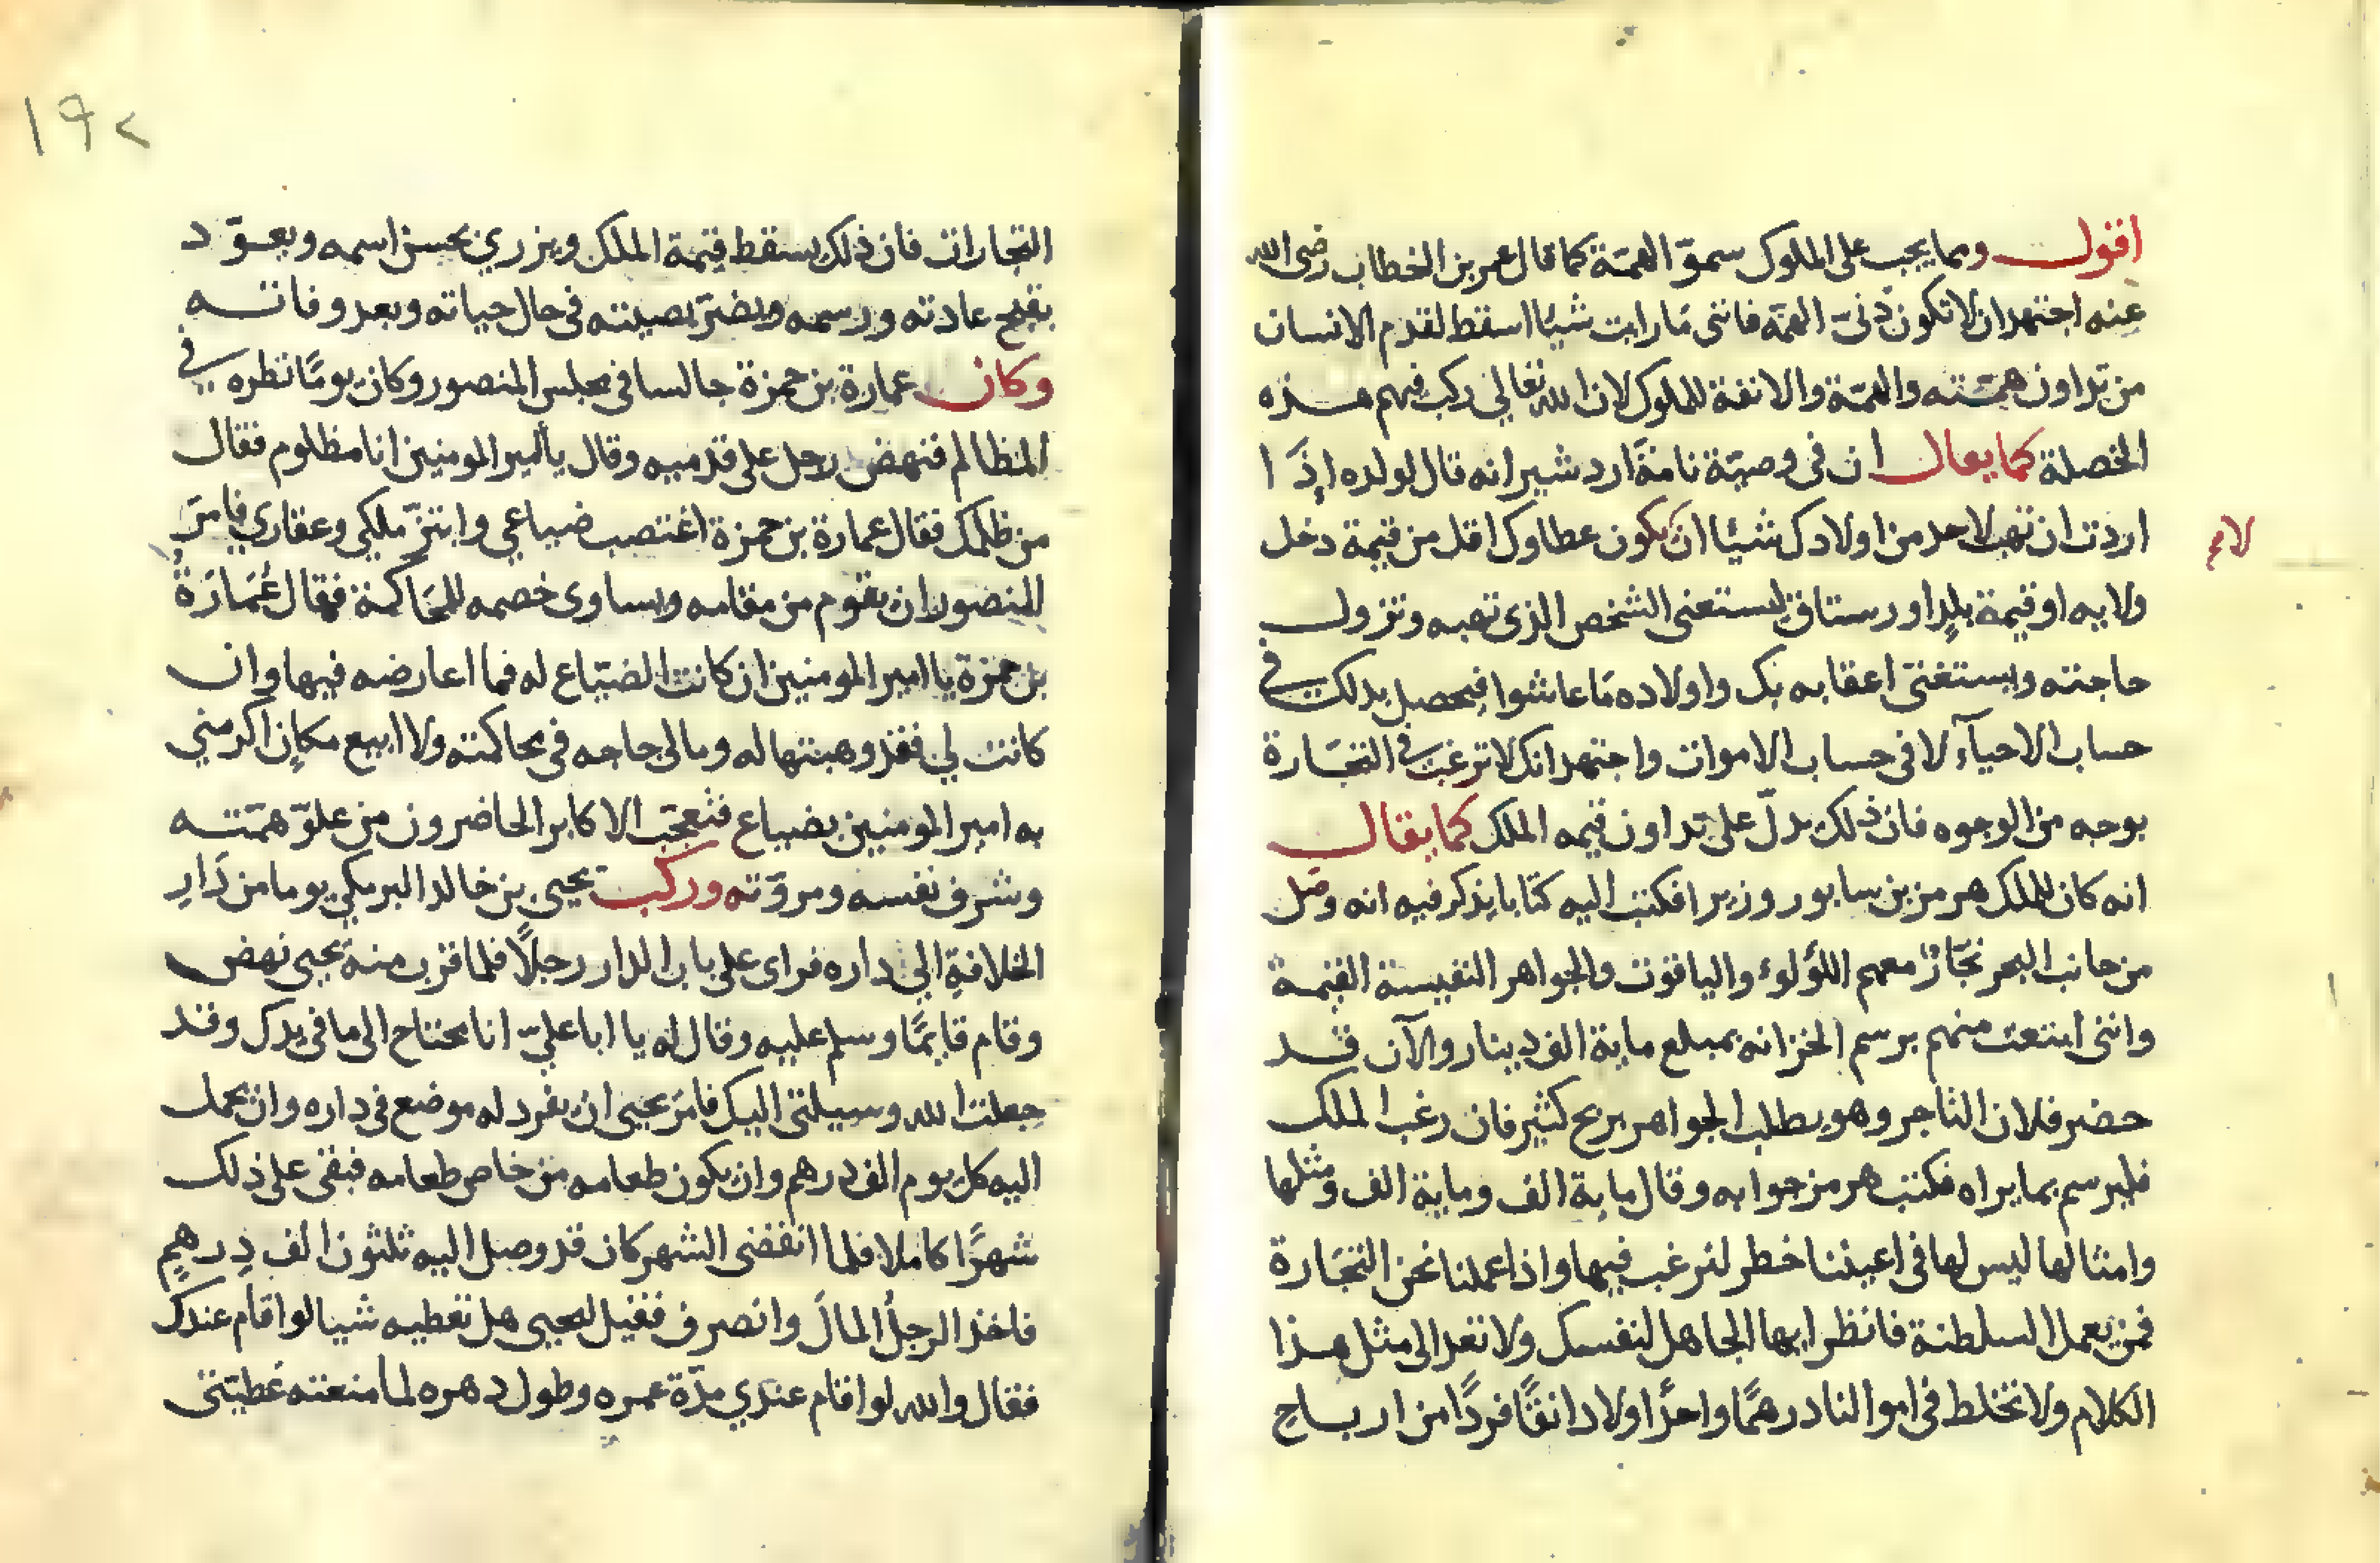 اقول ومما يجب على الملوك سموّ الهمّة كما قال عمر بن الخطاب رضى الله
عنه اجتهد ان لا تكون دنىّ الهمّة فاننى مَا رايت شيئا اسقط لقدم الانسان
من تداون همّته والهمّة والانفة للملوك لان الله تعالى ركب فيهم هذه
الخصلة كما يقال ان في وصيّة نامهٔ اردشير انه قال لولده اذَا
اردت ان تهب لاحد من اولادك شيئا ان يكون عطاوك اقل من قيمة دخل
لا مح
ولايه او قيمة بلدٍ او رستاق ليستغنى الشخص الذى تهبه وتزول
حاجته ويستغنى اعقابه بك واولاده مَا عاشوا فيحصل بذلك في
حساب الاحيآء لا في حساب الاموات واجتهد انك لا ترغب في التجَارة
بوجه من الوجوه فان ذلك يدلّ على تداون قيمه الملك كما يقال
انه كان للملك هرمز بن سابور وزيرا فكتب اليه كتابا يذكر فيه انه وصَل
من جانب البحر تجّارٌ معهم اللؤلوء والياقوت والجواهر النفيسة القيمة
واننى ابتعت منهم برسم الخزانه بمبلغ ماية الف دينار والآن قد
حضر فلان التاجر وهو يطلب الجواهر بربح كثير فان رغب الملك
فليرسم بما يراه فكتب هرمز جوابه وقال ماية الف وماية الف ومثلها
وامثالها ليس لها في اعيننا خطر لنرغب فيها واذا عملنا نحن التجَارة
فمن يعمل السلطنة فانظر ايها الجاهل لنفسك ولا تعد الى مثل هذا
الكلام ولا تخلط في اموالنا درهمًا واحدًا ولا دانقًا فردًا من ارباح
١٩٢
التجارات فان ذلك يسقط قيمة الملك ويزرى بحسن اسمه ويعوّد
بقبح عادته ورسمه ويضرّ بصيته في حال حياته وبعد وفاته
وكان عمارة بن حمزة جالسا في مجلس المنصور وكان يومًا نظره في
المظالم فنهض رجل على قدميه وقال يا أمير المومنين انا مظلوم فقال
من ظلمك فقال عمارة بن حمزة اغتصب ضياعي وابتزّ ملكي وعقاري فامرَ
المنصور ان يقوم من مقامه ويساوى خصمه للمحَاكمة فقال عُمَارَةُ
بن حمزة يا امير المومنين ان كانت الضيّاع له فما اعارضه فيها وان
كانت لي فقد وهبتها له ومالى حاجه في محاكمته ولا ابيع مكان اكرمني
به امير المومنين بضياع فتعجّب الاكابر الحاضرون من علوّ همّته
وشرف نفسه ومروّته وركب يحيى بن خالد البرمكي يوما من دَارِ
الخلافةِ الي داره فراى على باب الدار رجلًا فلما قرب منه يحيى نهض
وقام قايمًا وسلم عليه وقال له يا ابا عليّ انا محتاج الى ما في يدك وقد
جعلت الله وسيلتى اليك فامرَ يحيى ان يفرد له موضع في داره وان يحمل
اليه كل يوم الف درهم وان يكون طعامه من خاص طعامه فبقى على ذلك
شهرًا كاملا فلما انقضى الشهر كان قد وصل اليه ثلثون الف دِرهمٍ
فاخذ الرجلُ المالَ وانصرف فقيل ليحيى هل تعطيه شيا لو اقام عندك
فقال والله لو اقام عندي مدّة عمره وطول دهره لما منعته عَطيّتى